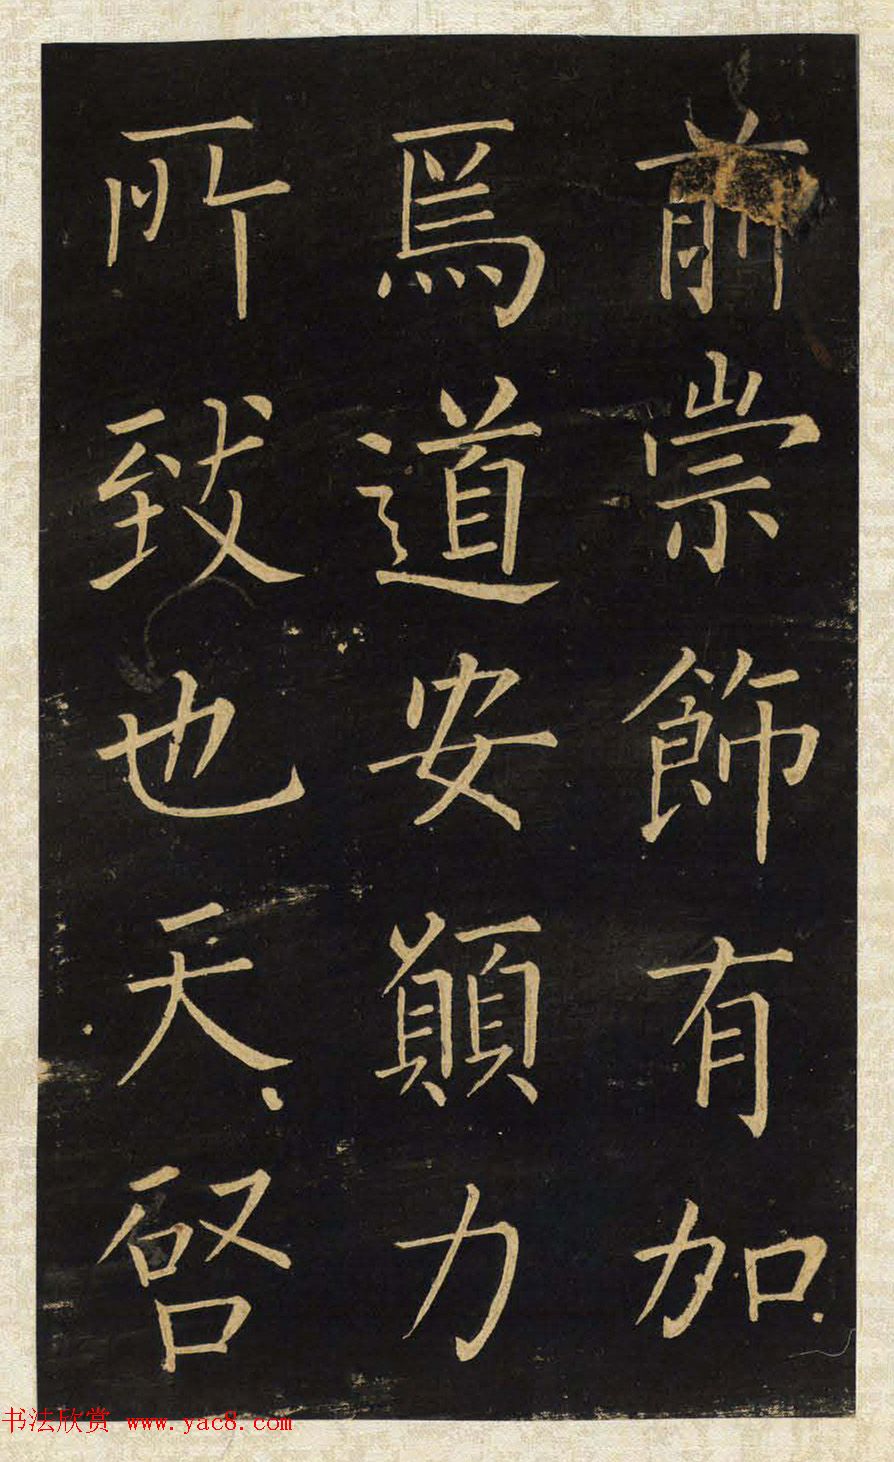 前崇飾有加
焉道安顛力
所致也天啓
书法欣赏 www.yac8.com